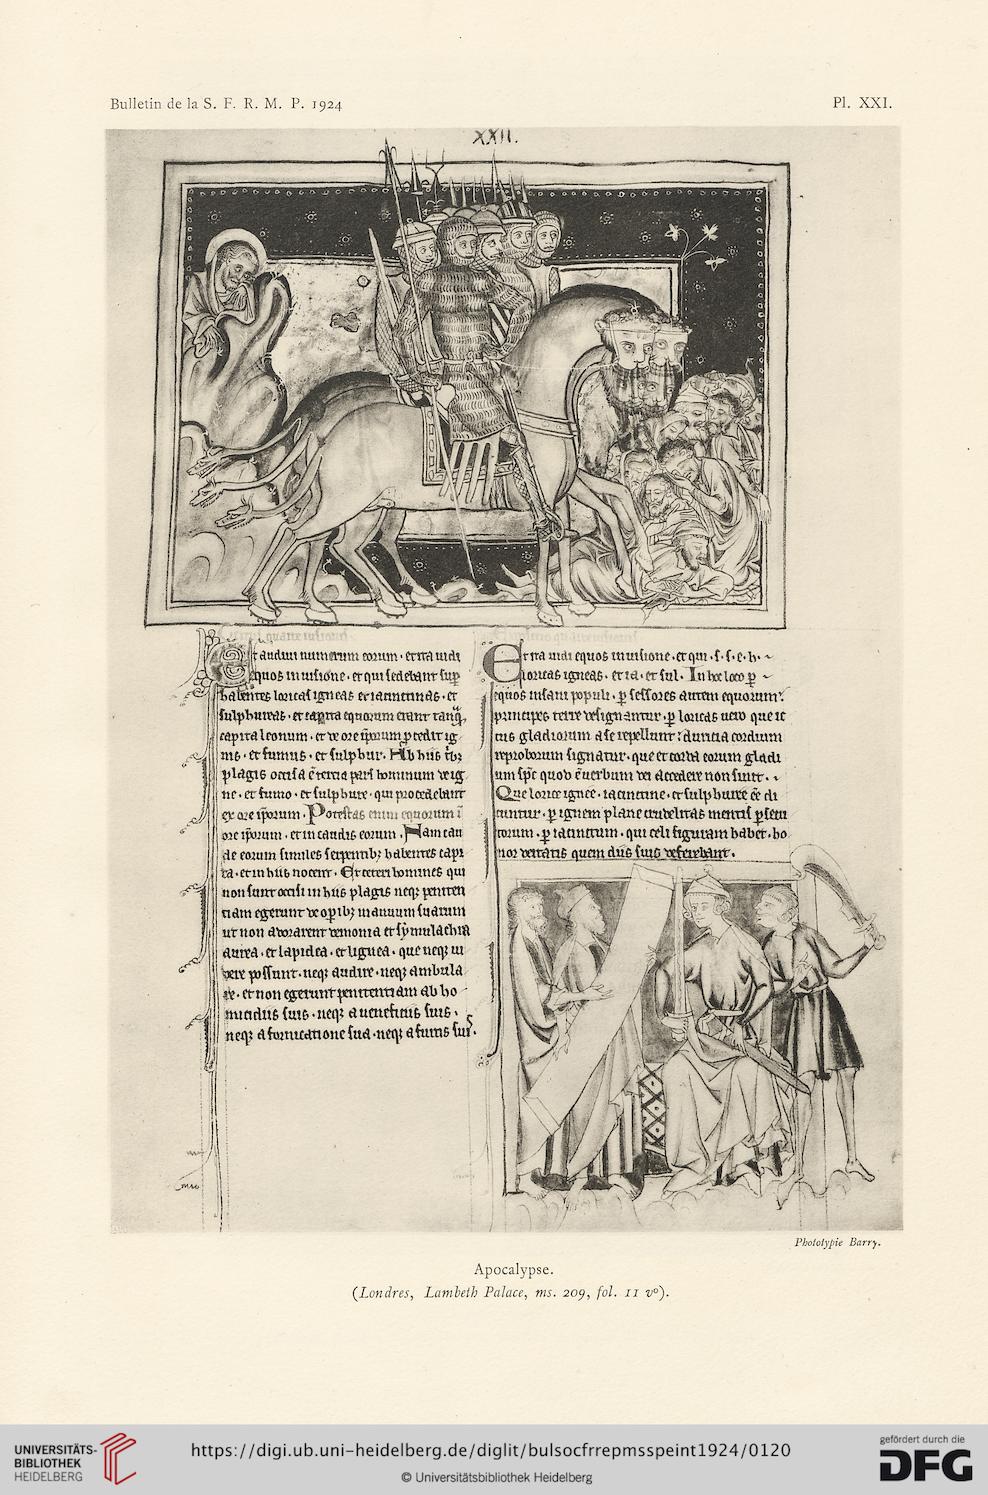 Bulletin de la S. F. R. M. P. 1924
Pl. XXI.
XXII.
Et audiui numerum eorum · et ita uidi
equos in uisione · et qui sedebant sup
habentes loricas igneas et iacinctinas · et
sulphureas · et capita equorum erant tanq̃
capita leonum · et de ore ip̃orum procedit ig
nis · et fumus · et sulphur · Ab hiis trib;
plagis occisa ẽ tercia pars hominum de ig
ne · et fumo · et sulphure · qui procedebant
ex ore ip̃orum · Potestas enim equorum ĩ
ore ip̃orum · et in caudis eorum · Nam cau
de eorum similes serpentib; habentes capi
ta · et in hiis nocent · Et ceteri homines qui
non sunt occisi in hiis plagis neq; peniten
tiam egerunt de op̃ib; manuum suarum
ut non adorarent demonia et symulachra
aurea · et lapidea · et lignea · que neq; ui
dere possunt · neq; audire · neq; ambula
re · et non egerunt penitentiam ab ho
micidiis suis · neq; a ueneficiis suis ·
neq; a fornicatione sua · neq; a furtis suis ·
Et ita uidi equos in uisione · et qui · s · s · e · h ·
loricas igneas · et ia · et sul · In hoc loco p
equos iusani populi · p sessores autem equorum
principes terre designantur · p loricas uero que ic
tus gladiorum a se repellunt : duricia cordium
reproborum signatur · que et corda eorum gladi
um sp̃c quod ẽ uerbum dei accedere non sinit ·
Que lorice ignee · iacinctine · et sulphuree ẽe di
cuntur · p ignem plane crudelitas mentis psecu
torum · p iacinctum · qui celi figuram habet · ho
nor deitatis quem diis suis deferebant ·
Phototypie Barry.
Apocalypse.
(Londres, Lambeth Palace, ms. 209, fol. 11 vº).
UNIVERSITÄTS-
BIBLIOTHEK
HEIDELBERG
https://digi.ub.uni-heidelberg.de/diglit/bulsocfrrepmsspeint1924/0120
© Universitätsbibliothek Heidelberg
gefördert durch die
DFG